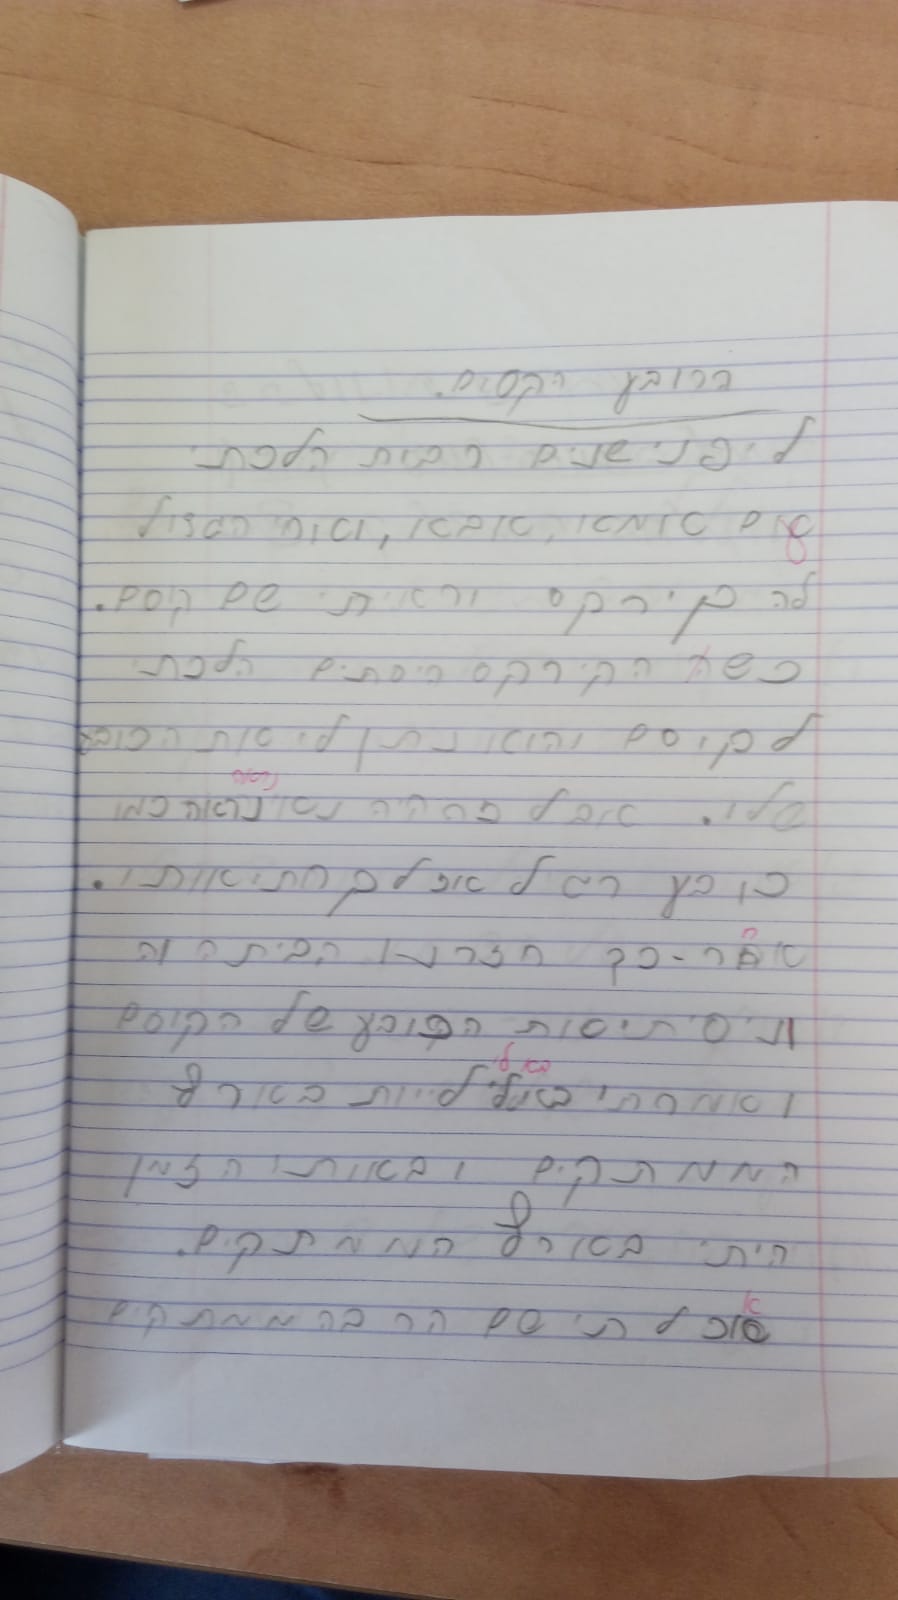 הכובע הקסים.
ליפני שנים רבות הלכתי
עם אימא, אבא, ואחי הגדול
לקירקס וראיתי שם קוסם.
כשה הקירקס היסתים הלכתי
לקוסם והוא נתן לי את הכובע
שלו. אבל זה היה נראה כמו
כובע רגל אבל לקחתי אותו.
אחר-כך חזרנו הביתה וה
ניסיתי את הכובע של הקוסם
ואמרתי בא לי ליות בארץ
הממתקים ובאותו הזמן
היתי בארץ הממתקים.
אכלתי שם הרבה ממתקים